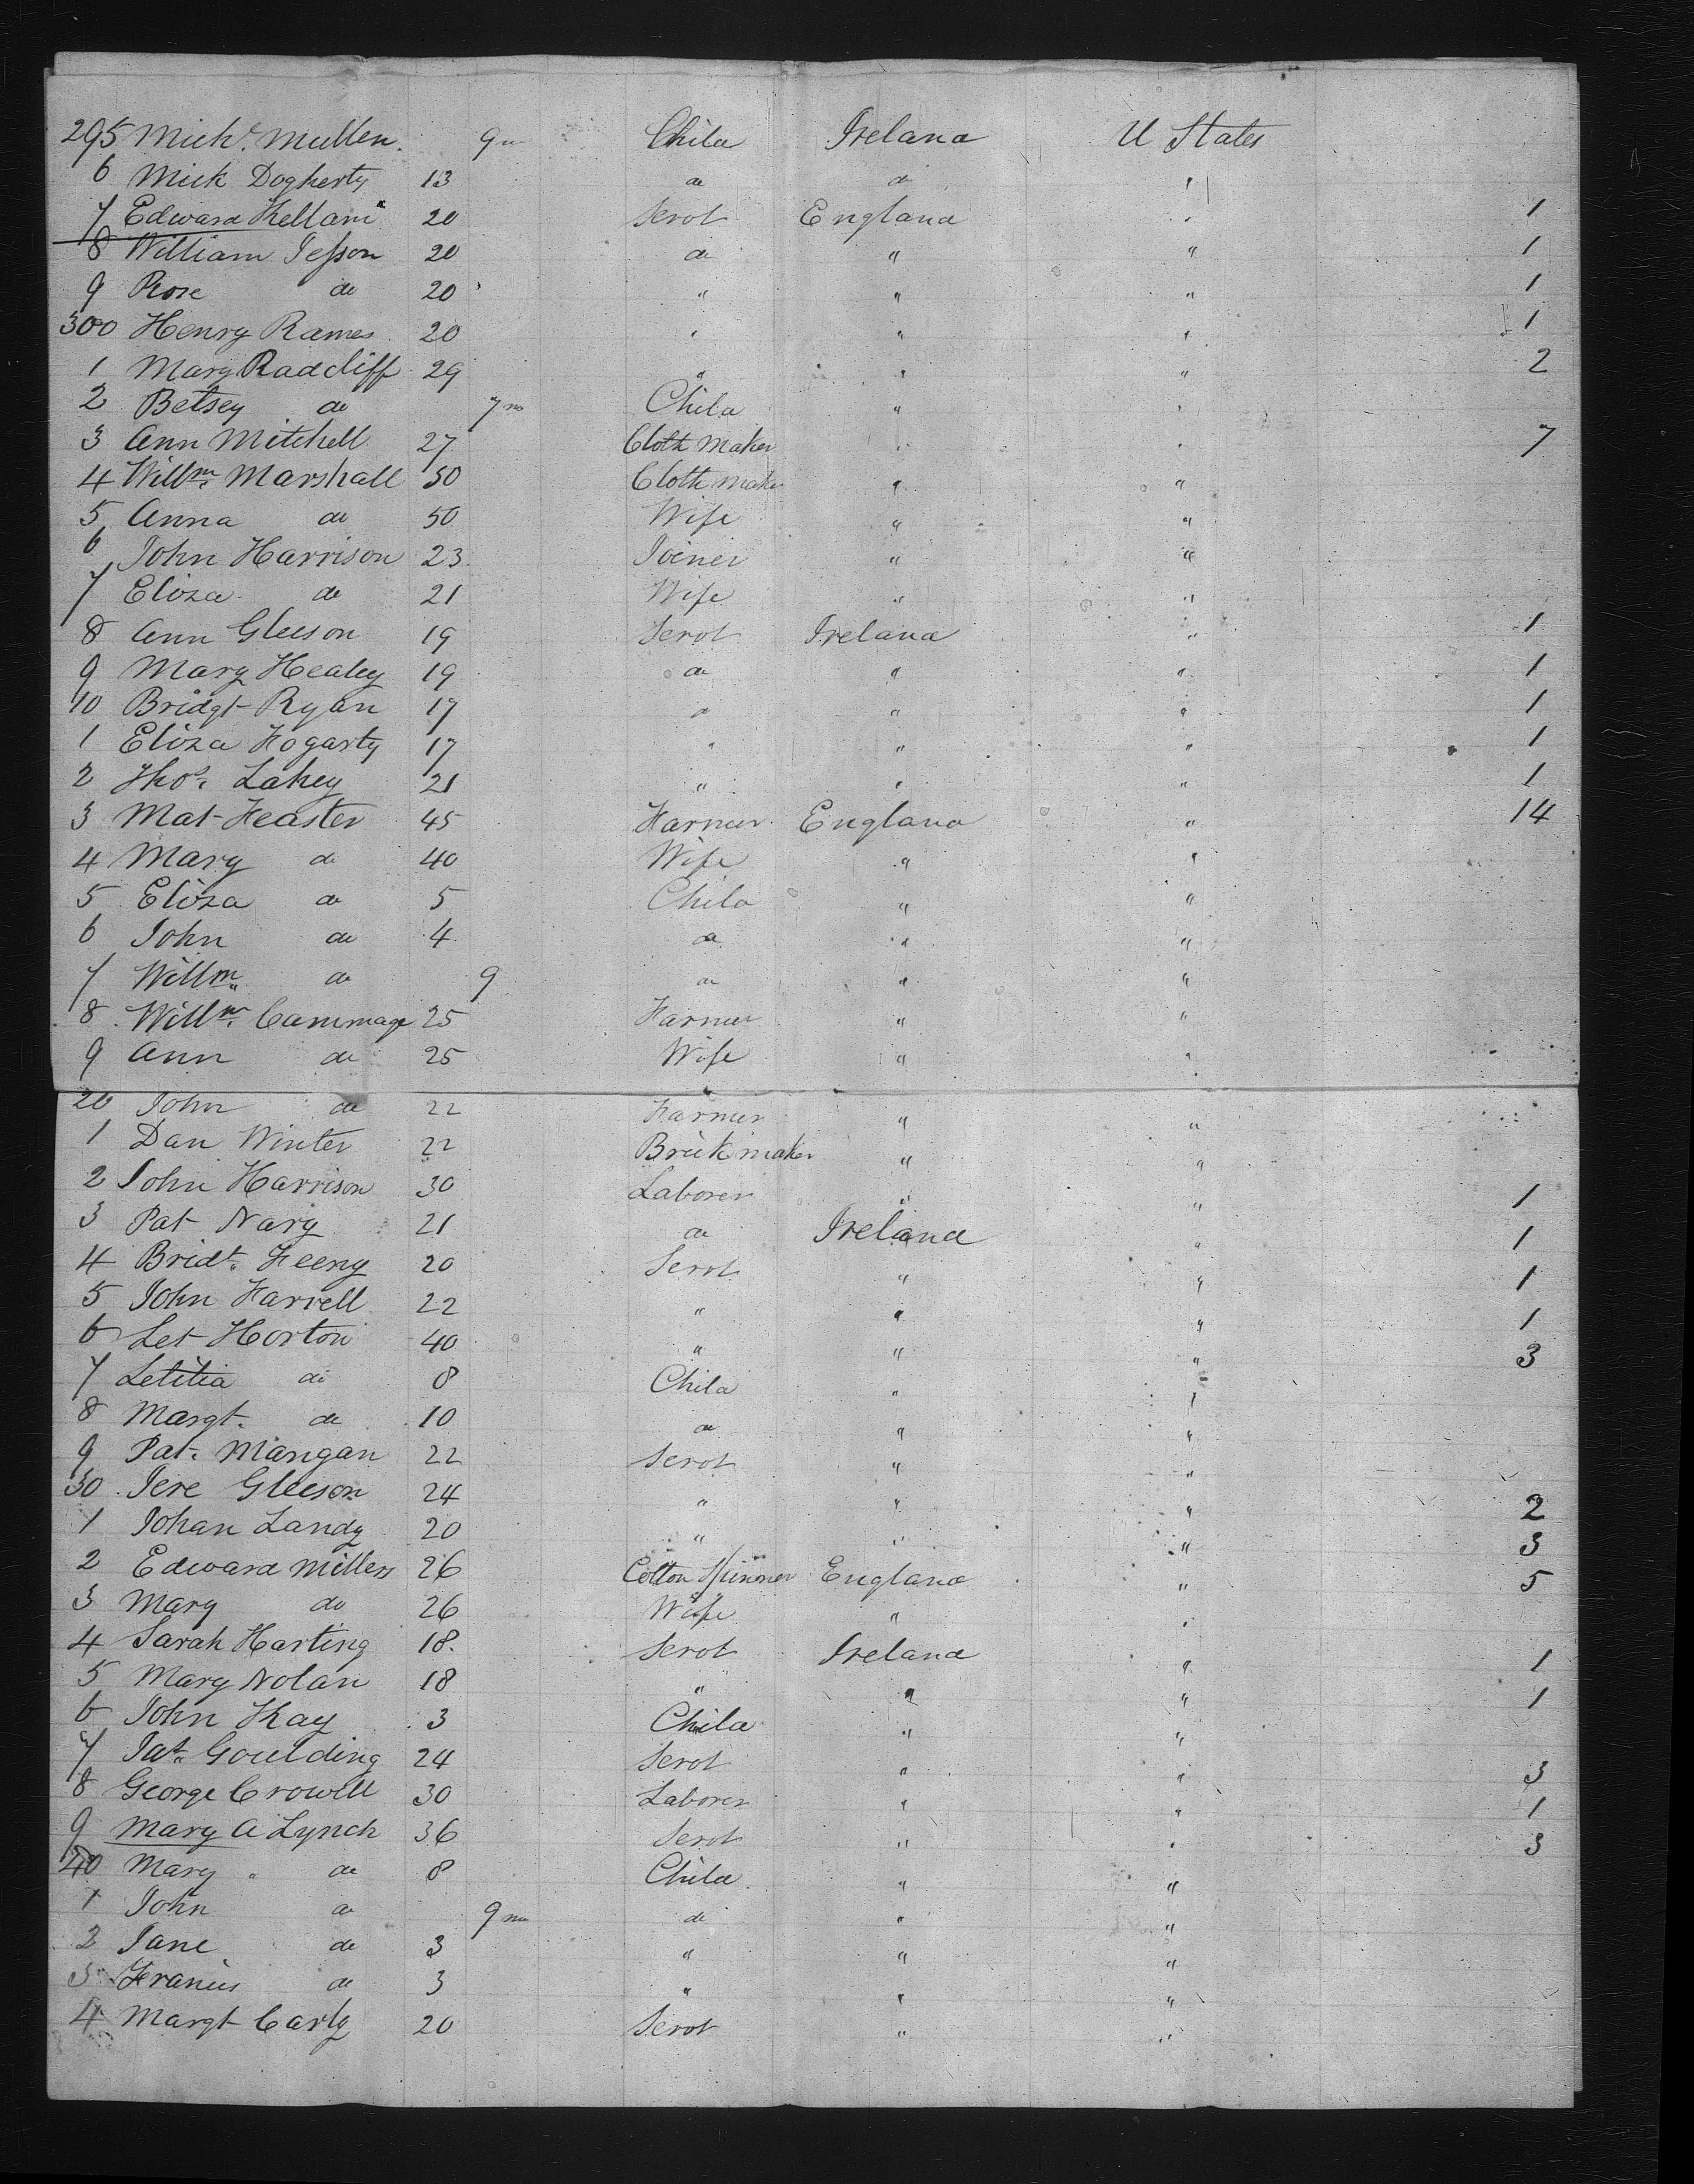 295 Mich.l Mullen. 9 m Child Ireland U States
6 Mick Dogherty 13 do do "
7 Edward Kellam 20 Servt England " 1
8 William Jesson 20 do " " 1
9 Rose do 20 " " " 1
300 Henry Rames 20 " " " 1
1 Mary Radcliff 29 " " " 2
2 Betsey do 7 m Child " "
3 Ann Mitchell 27 Cloth Maker " " 7
4 Willm. Marshall 50 Cloth Maker " "
5 Anna do 50 Wife " "
6 John Harrison 23 Joiner " "
7 Eliza do 21 Wife " "
8 Ann Gleeson 19 Servt Ireland " 1
9 Mary Healey 19 do " " 1
10 Bridgt Ryan 17 do " " 1
1 Eliza Fogarty 17 " " " 1
2 Thos. Lahey 21 " " " 1
3 Mat Feaster 45 Farmer England " 14
4 Mary do 40 Wife " "
5 Eliza do 5 Child " "
6 John do 4 do " "
7 Willm do 9 do " "
8 Willm. Cammage 25 Farmer " "
9 Ann do 25 Wife " "
20 John do 22 Farmer " "
1 Dan Winter 22 Brickmaker " "
2 John Harrison 30 Laborer " " 1
3 Pat Nary 21 do Ireland " 1
4 Bridt. Feeny 20 Servt " " 1
5 John Farrell 22 " " " 1
6 Let Horton 40 " " " 3
7 Letitia do 8 Child " "
8 Margt. do 10 do " "
9 Pat. Mangan 22 Servt " "
30 Jere Gleeson 24 " " " 2
1 Johan Landy 20 " " " 3
2 Edward Millers 26 Cotton Spinner England " 5
3 Mary do 26 Wife " "
4 Sarah Harting 18. Servt Ireland " 1
5 Mary Nolan 18 " " " 1
6 John Kay 3 Child " "
7 Pat. Goulding 24 Servt " " 3
8 George Crowell 30 Laborer " " 1
9 Mary A Lynch 36 Servt " " 3
40 Mary " do 8 Child " "
1 John do 9 m do " "
2 Jane do 3 " " "
3 Francis do 3 " " "
4 Margt Carty 20 Servt " "